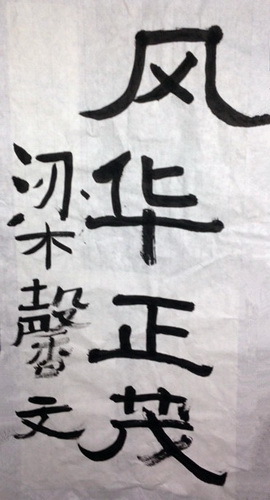 风华正茂
梁馨文